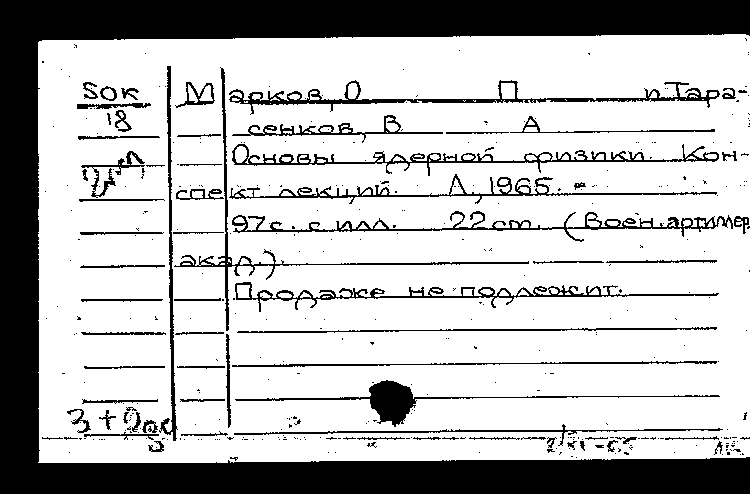 SOK Марков, О П и Тара-
18 сенков, В А
Основы ядерной физики. Кон-
спект лекций. Л., 1965. -
97с. с илл. 22 cm. (Воен. артиллер.
акад.).
Продаже не подлежит.
3 +